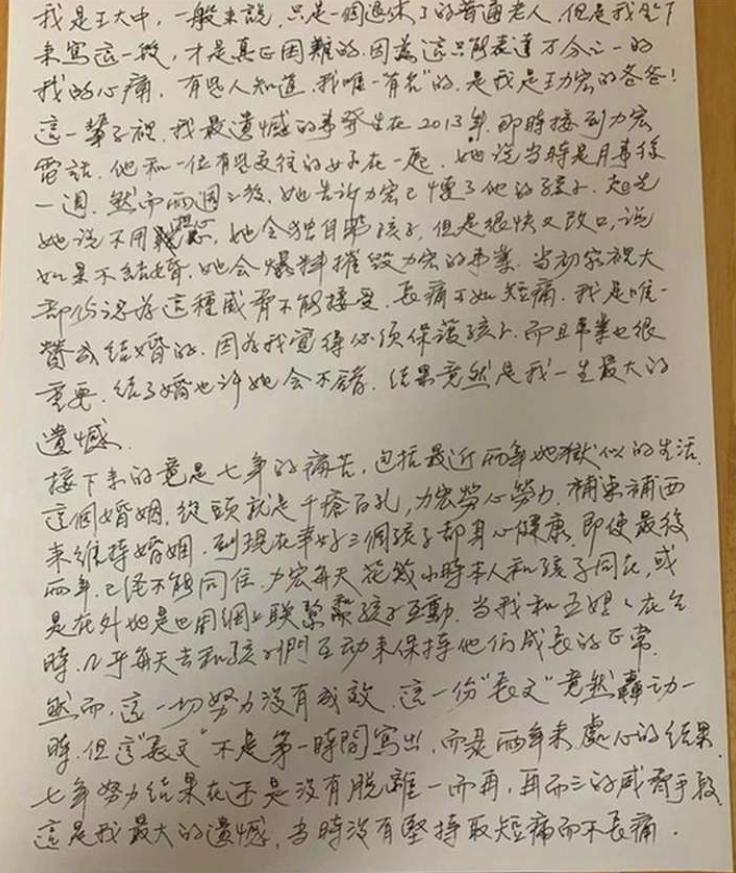 我是王大中，一般來說，只是一個退休了的普通老人，但是我坐下
來寫這一段，才是真正困難的．因為這只能表達萬分之一的
我的心痛．有些人知道，我唯一"有名"的，是我是王力宏的爸爸！
這一輩子裡，我最遺憾的事發生在2013年，那時接到力宏
電話．他和一位有些交往的女子在一起．她說當時是月事後
一週．然而兩週之後，她告訴力宏已懷了他的孩子．起先
她說不用擔心，她会独自帶孩子，但是很快又改口，說
如果不結婚．她会爆料摧毀力宏的事業．當初家裡大
部份認為這種威脅不能接受．長痛不如短痛．我是唯一
贊成結婚的．因為我覺得必須保護孩子．而且事業也很
重要．結了婚也许她会不錯．結果竟然是我一生最大的
遺憾．
接下來的竟是七年的痛苦，包括最近兩年地獄似的生活．
這個婚姻，從頭就是千瘡百孔，力宏勞心勞力，補東補西
來維持婚姻．到現在幸好三個孩子都身心健康．即使最後
兩年，已經不能同住．力宏每天花幾小時本人和孩子同在，或
是在外地是也用網上联繫跟孩子互動．當我和王媽媽在台
時．几乎每天去和孩子們互动來保持他们成長的正常．
然而，這一切努力沒有成效．這一份"長文"竟然轟动一
時．但這"長文"不是第一時間寫出，而是兩年來處心的結果．
七年努力結果在还是沒有脫離一而再，再而三的威脅手段
這是我最大的遺憾，當時沒有堅持取短痛而不長痛．